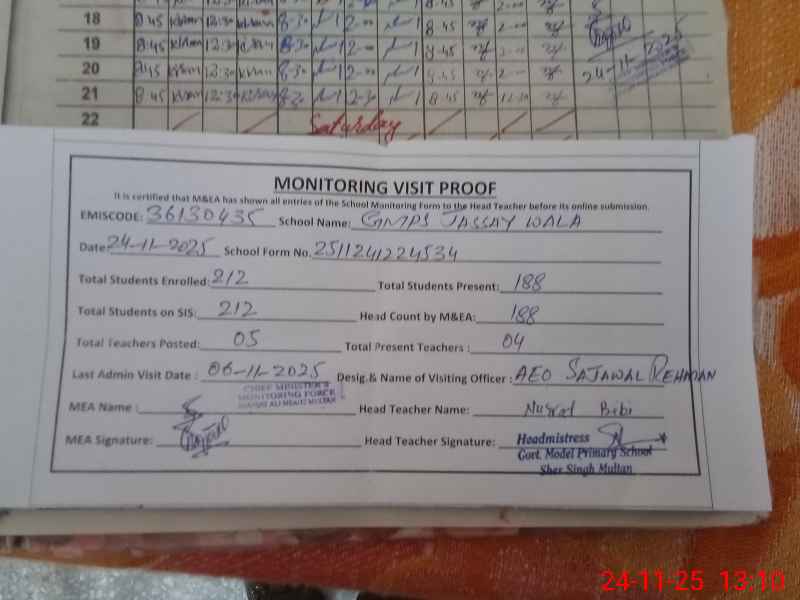 18 8.45 Khan 12.30 2-00 8.45
19 8:45 Khan 12:30 8.30 2-00 8.45 2-00
20 8:45 Khan 12:30 8.30 2-00 8.45 2-00
21 8.45 Khan 12:30 8.30 2-30 8.45
24-11-2025
22 Saturday
MONITORING VISIT PROOF
It is certified that M&EA has shown all entries of the School Monitoring Form to the Head Teacher before its online submission.
EMISCODE: 36130435 School Name: GMPS JASSAY WALA
Date: 24-11-2025 School Form No. 2511241224534
Total Students Enrolled: 212 Total Students Present: 188
Total Students on SIS: 212 Head Count by M&EA: 188
Total Teachers Posted: 05 Total Present Teachers : 04
Last Admin Visit Date : 06-11-2025 Desig.& Name of Visiting Officer : AEO SAJAWAL REHMAN
CHIEF MINISTER'S
MONITORING FORCE
MEA Name : Head Teacher Name: Nusrat Bibi
MEA Signature: Head Teacher Signature: Headmistress
Govt. Model Primary School
Sher Singh Multan
24-11-25 13:10